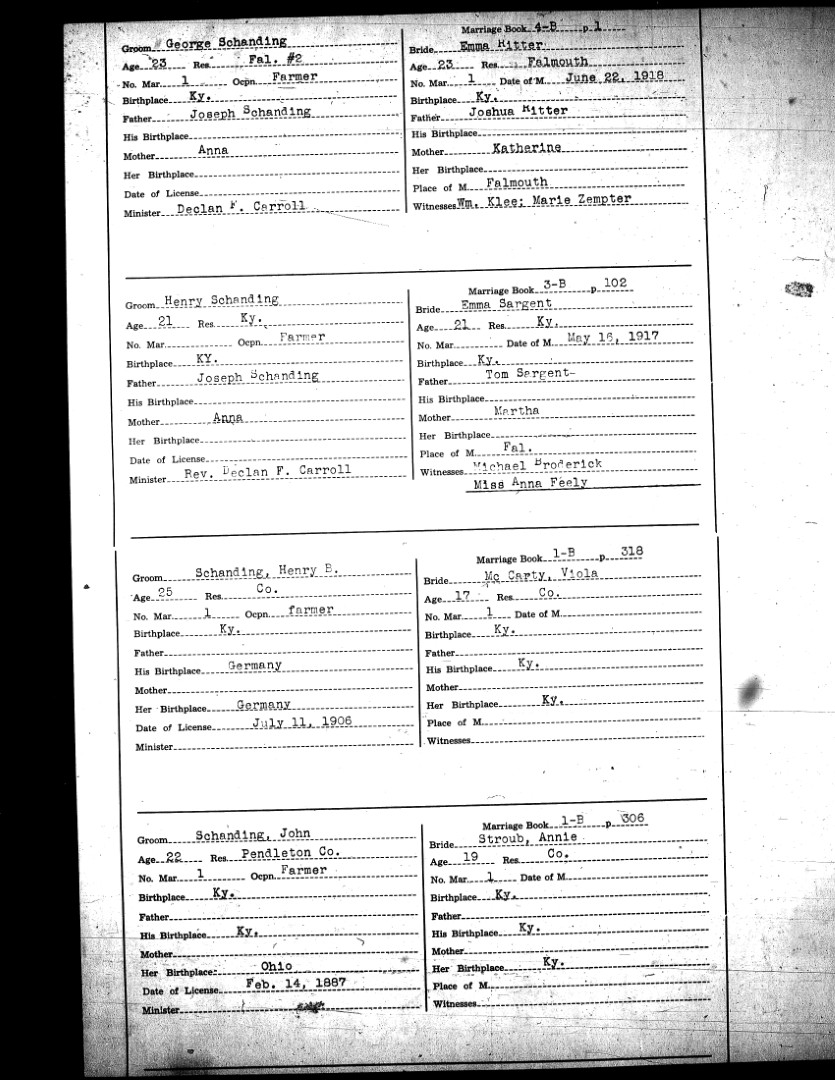 Groom George Schanding
Age 23 Res. Fal. #2
No. Mar. 1 Ocpn. Farmer
Birthplace Ky.
Father Joseph Schanding
His Birthplace
Mother Anna
Her Birthplace
Date of License
Minister Declan F. Carroll
Marriage Book 4-B p 1
Bride Emma Ritter
Age 23 Res. Falmouth
No. Mar. 1 Date of M. June 22, 1918
Birthplace Ky.
Father Joshua Ritter
His Birthplace
Mother Katherine
Her Birthplace
Place of M. Falmouth
Witnesses Wm. Klee; Marie Zempter
Groom Henry Schanding
Age 21 Res. Ky.
No. Mar. Ocpn. Farmer
Birthplace KY.
Father Joseph Schanding
His Birthplace
Mother Anna
Her Birthplace
Date of License
Minister Rev. Declan F. Carroll
Marriage Book 3-B p 102
Bride Emma Sargent
Age 21 Res. Ky.
No. Mar. Date of M. May 16, 1917
Birthplace Ky.
Father Tom Sargent-
His Birthplace
Mother Martha
Her Birthplace
Place of M. Fal.
Witnesses Michael Broderick
Miss Anna Feely
Groom Schanding, Henry B.
Age 25 Res. Co.
No. Mar. 1 Ocpn. farmer
Birthplace Ky.
Father
His Birthplace Germany
Mother
Her Birthplace Germany
Date of License July 11, 1906
Minister
Marriage Book 1-B p 318
Bride Mc Carty, Viola
Age 17 Res. Co.
No. Mar. 1 Date of M.
Birthplace Ky.
Father
His Birthplace Ky.
Mother
Her Birthplace Ky.
Place of M.
Witnesses
Groom Schanding, John
Age 22 Res. Pendleton Co.
No. Mar. 1 Ocpn. Farmer
Birthplace Ky.
Father
His Birthplace Ky.
Mother
Her Birthplace Ohio
Date of License Feb. 14, 1887
Minister
Marriage Book 1-B p 306
Bride Stroub, Annie
Age 19 Res. Co.
No. Mar. 1 Date of M.
Birthplace Ky.
Father
His Birthplace Ky.
Mother
Her Birthplace Ky.
Place of M.
Witnesses